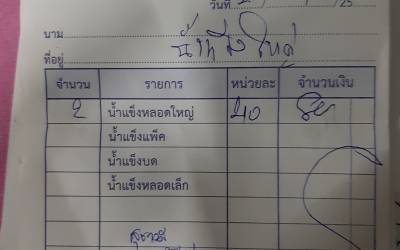 วันที่ /25
นาม
ที่อยู่
จำนวน รายการ หน่วยละ จำนวนเงิน
2 น้ำแข็งหลอดใหญ่ 40 80
น้ำแข็งแพ็ค
น้ำแข็งบด
น้ำแข็งหลอดเล็ก